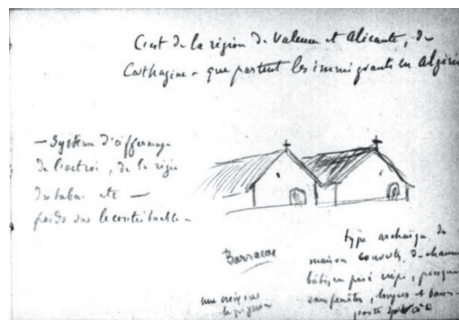 C'est de la région de Valence et Alicante, de
Carthagène - que partent les immigrants en Algérie
- Système d'affermage
de l'octroi, de la régie
du tabac etc -
poids sur le contribuable -
Barracas
type archaïque de
maison couverte de chaume
bâtie en pisé crépi, presque
sans fenêtres, longues et
porte
une origine
le pignon